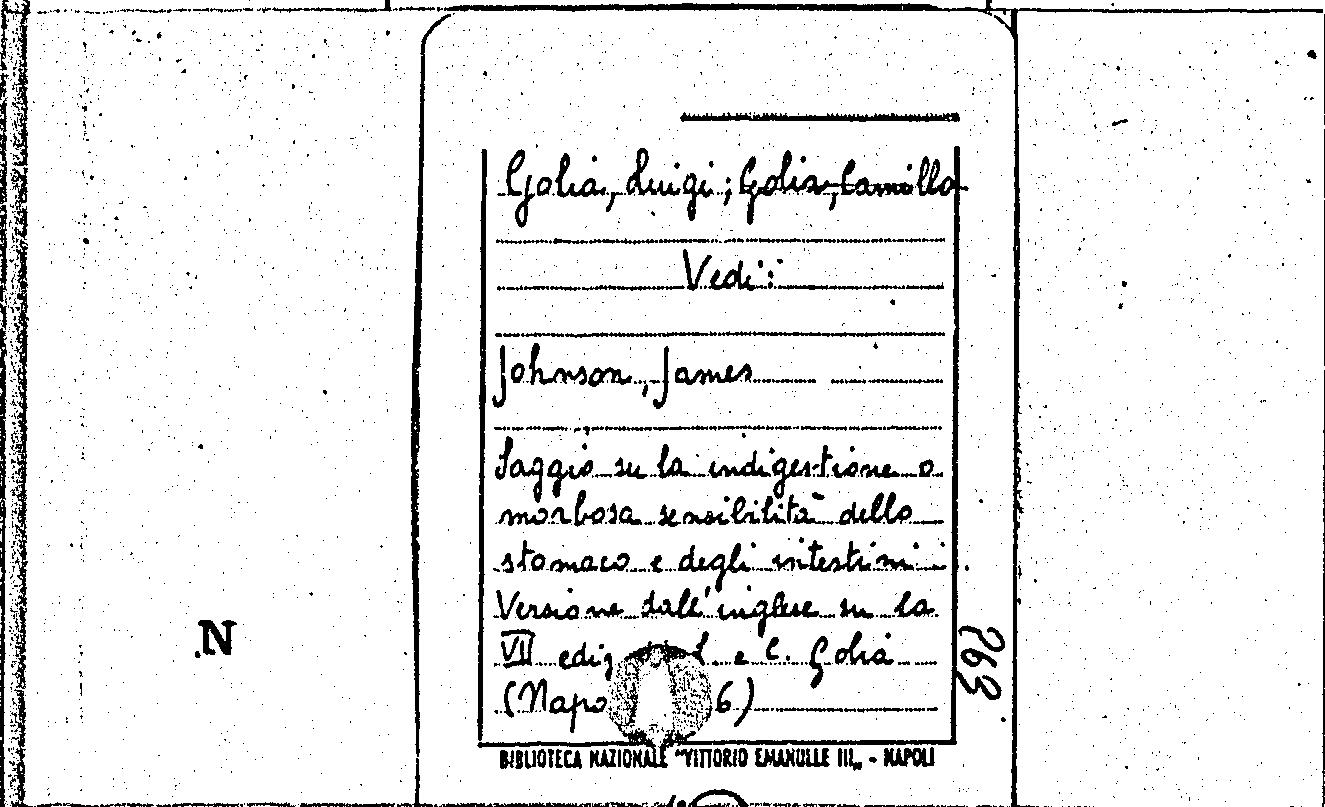 Golia, Luigi; Golia, Camillo
Vedi:
Johnson, James
Saggio su la indigestione o
morbosa sensibilità dello
stomaco e degli intestini.
Versione dall'inglese su la
VII ediz L. e C. Golia
(Napo 6)
BIBLIOTECA NAZIONALE "VITTORIO EMANUELE III„ - NAPOLI
N
263